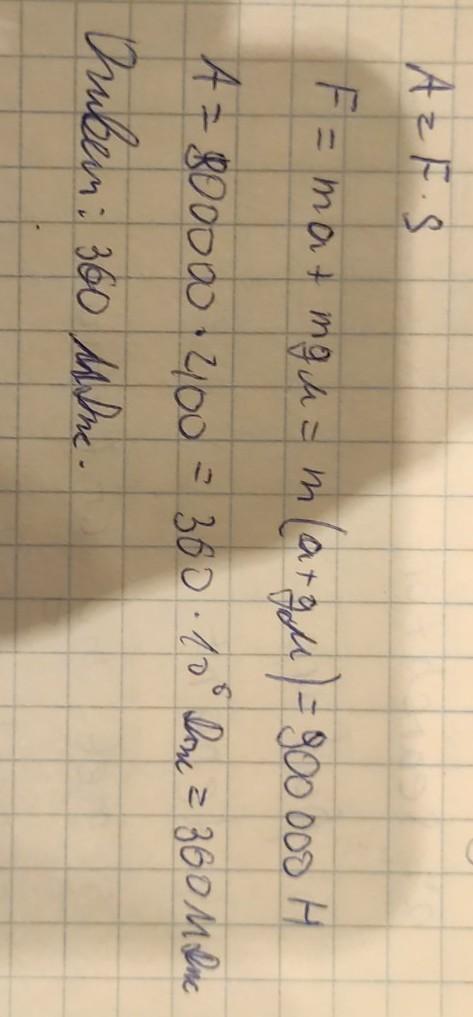 A = F · S
F = ma + mgμ = m(a + gμ) = 900 000 Н
A = 900000 · 400 = 360 · 10⁶ Дж = 360 МДж
Ответ: 360 МДж.